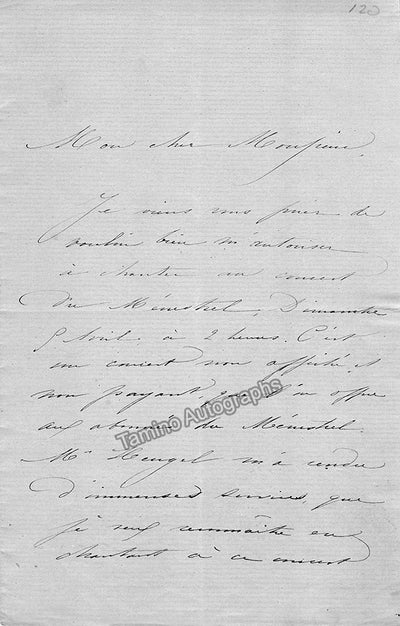 120
Mon cher Monsieur,
Je viens vous prier de
vouloir bien m'autoriser
à chanter au concert
du Ménestrel, Dimanche
5 Avril, à 2 heures. C'est
un concert non affiché et
non payant, que l'on offre
aux abonnés du Ménestrel.
Mr Heugel m'a rendu
d'immenses services, que
je veux reconnaître en
chantant à ce concert
Tamino Autographs